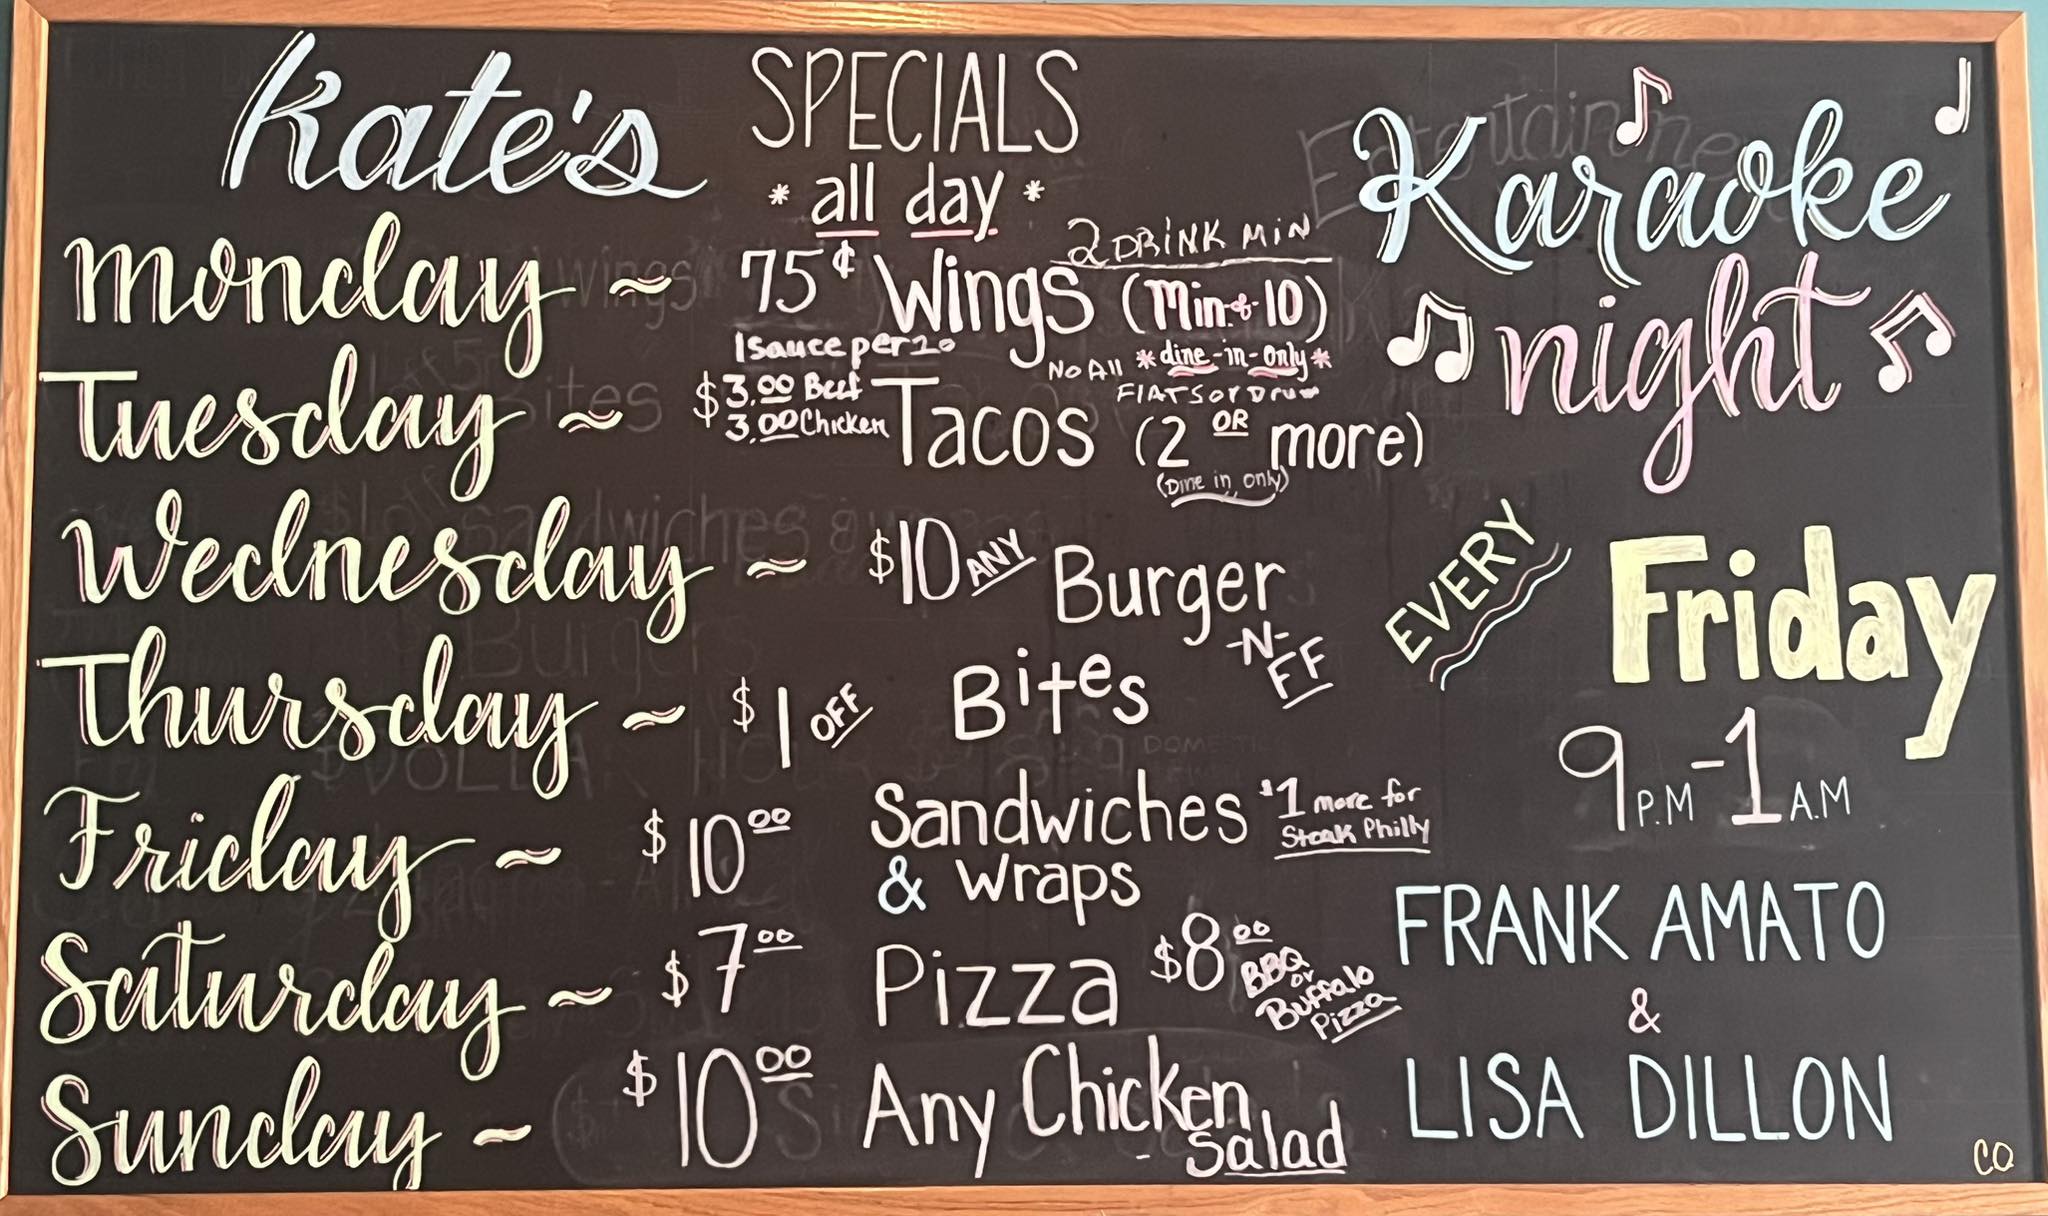 Kate's SPECIALS
* all day *
Monday ~ 75¢ Wings (Min of 10)
2 DRINK MIN
1 sauce per 10
*dine-in-only*
No All FlATS or Drum
Tuesday ~ $3.00 Beef Tacos (2 OR more)
3.00 Chicken
(Dine in only)
Wednesday ~ $10 ANY Burger
-N-
FF
Thursday ~ $1 OFF Bites
Friday ~ $10.00 Sandwiches $1 more for
Steak Philly
& Wraps
Saturday ~ $7.00 Pizza $8.00 BBQ
or
Buffalo
Pizza
Sunday ~ $10.00 Any Chicken
Salad
Karaoke
night
EVERY Friday
9 P.M - 1 A.M
FRANK AMATO
&
LISA DILLON
CO